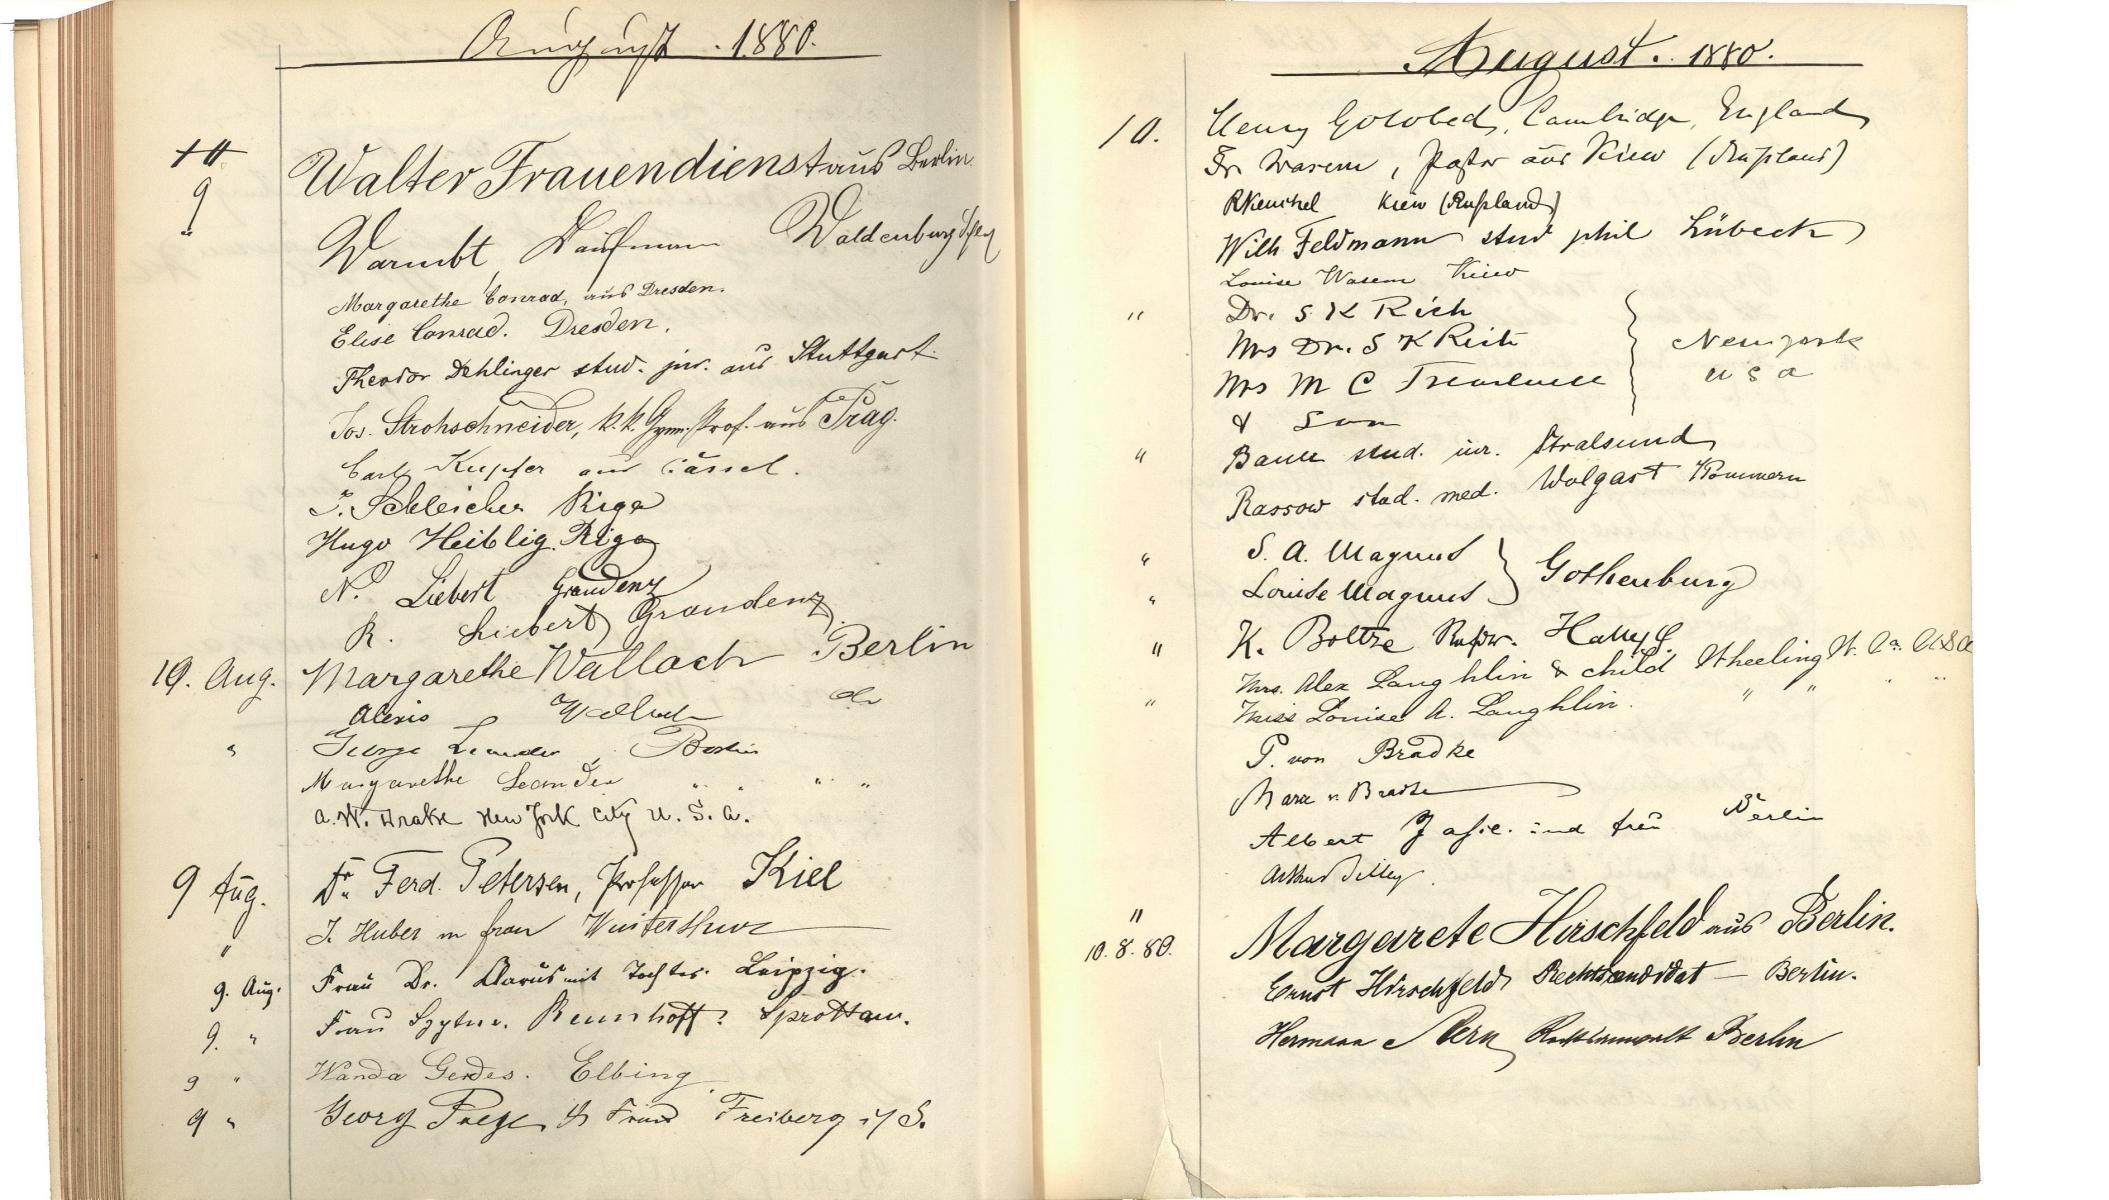 August 1880.
10
9 Walter Frauendienst aus Berlin.
" Warmbt, Kaufmann Waldenburg Schl
Margarethe Conrad, aus Dresden.
Elise Conrad. Dresden.
Theodor Dehlinger stud. jur. aus Stuttgart.
Jos. Strohschneider, k.k. Gymn. Prof. aus Prag.
Carl Kupfer aus Cassel.
Schleicher Riga
Hugo Heiblig. Riga
N. Liebert Graudenz
R. Liebert Graudenz.
10. Aug. Margarethe Wallach Berlin
Alexis Wallach do
" George Leander, Berlin
Margarethe Leander " " " "
A. W. Drake New York City U. S. A.
9 Aug. Dr. Ferd. Petersen, Professor Kiel
" J. Huber m frau Winterthur
9. Aug. Frau Dr. Clarus mit Tochter. Leipzig.
9. " Frau Sprottau.
9 " Wanda Gerdes. Elbing
9 " Georg & Frau Freiberg i/S.
August. 1880.
10. Henry Golobed, Cambridge, England
Fr. Wasem, Pastor aus Kiew (Rußland)
Kiew (Rußland)
Wilh Feldmann stud phil Lübeck
Louise Wasem Kiew
" Dr. S K Rich
Mrs Dr. S K Rich Newyork
Mrs M C U S A
& Son
" Bauer stud. jur. Stralsund
Rassow stud. med. Wolgast Pommern
" S. A. Magnus Gothenburg
" Louise Magnus
" K. Boltze Halle
Mrs. Alex Laughlin & child Wheeling W. Va. U S A
" Miss Louise A. Laughlin. " " " "
P. von Bradke
v. Bradke
Albert und frau Berlin
Arthur
" Margarete Hirschfeld aus Berlin.
10. 8. 80.
Ernst Hirschfeld Rechtscandidat — Berlin.
Hermann Stern Rechtsanwalt Berlin